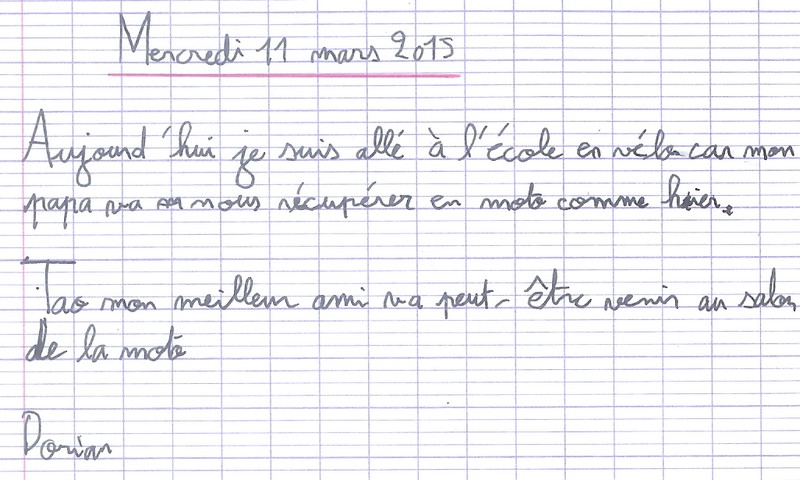 Mercredi 11 mars 2015
Aujourd'hui je suis allé à l'école en vélo car mon
papa va nous récupérer en moto comme hier.
Tao mon meilleur ami va peut-être venir au salon
de la moto
Dorian